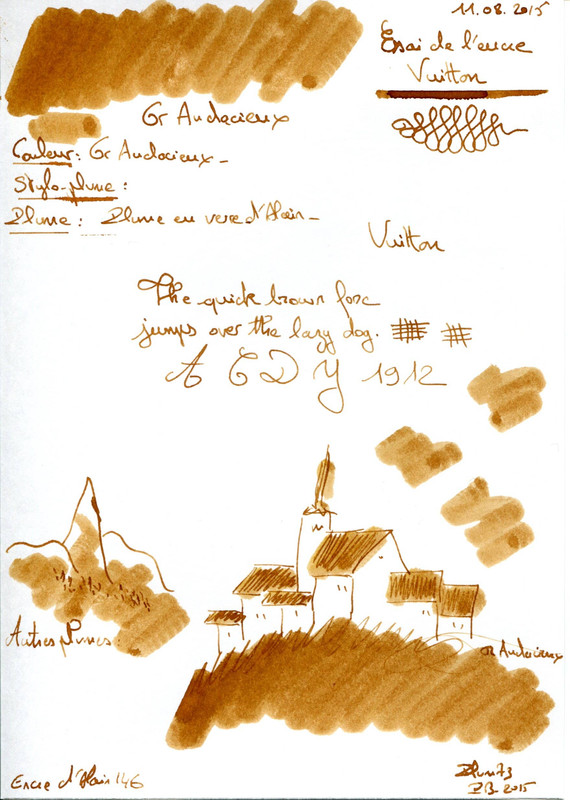 11.08.2015
Essai de l'encre
Vuitton
Or Audacieux
Couleur : Or Audacieux_
Stylo-plume :
Plume : Plume en verre d'Alain_
Vuitton
The quick brown fox
jumps over the lazy dog.
A C D Y 1912
Autres plumes :
Or Audacieux
Encre d'Alain 146
Plum73
PB-2015